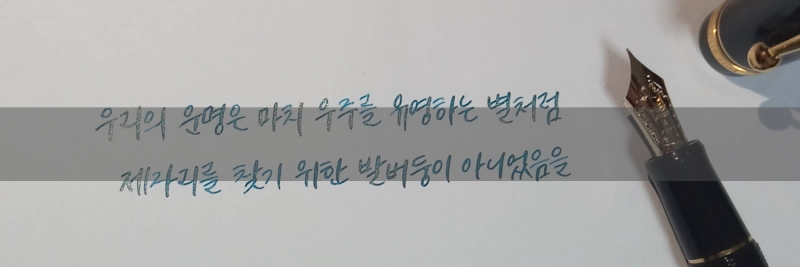 우리의 운명은 마치 우주를 유영하는 별처럼
제자리를 찾기 위한 발버둥이 아니었음을